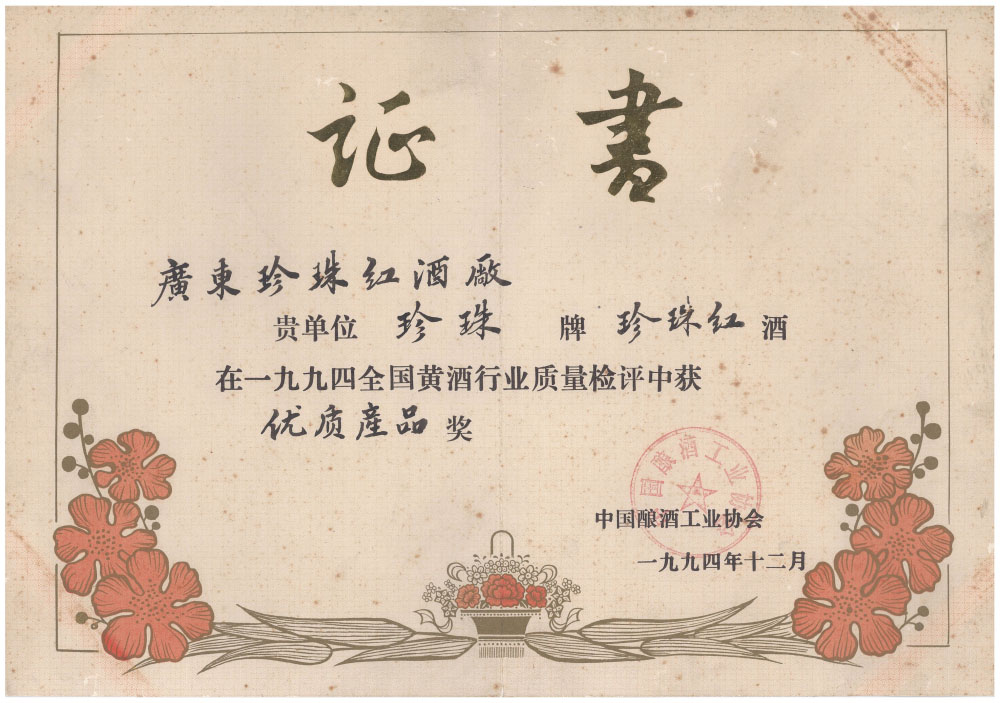 证 書
廣東珍珠红酒廠
贵单位 珍珠 牌 珍珠红 酒
在一九九四全国黄酒行业质量检评中获
优质産品 奖
中国酿酒工业协会
中国酿酒工业协会
一九九四年十二月